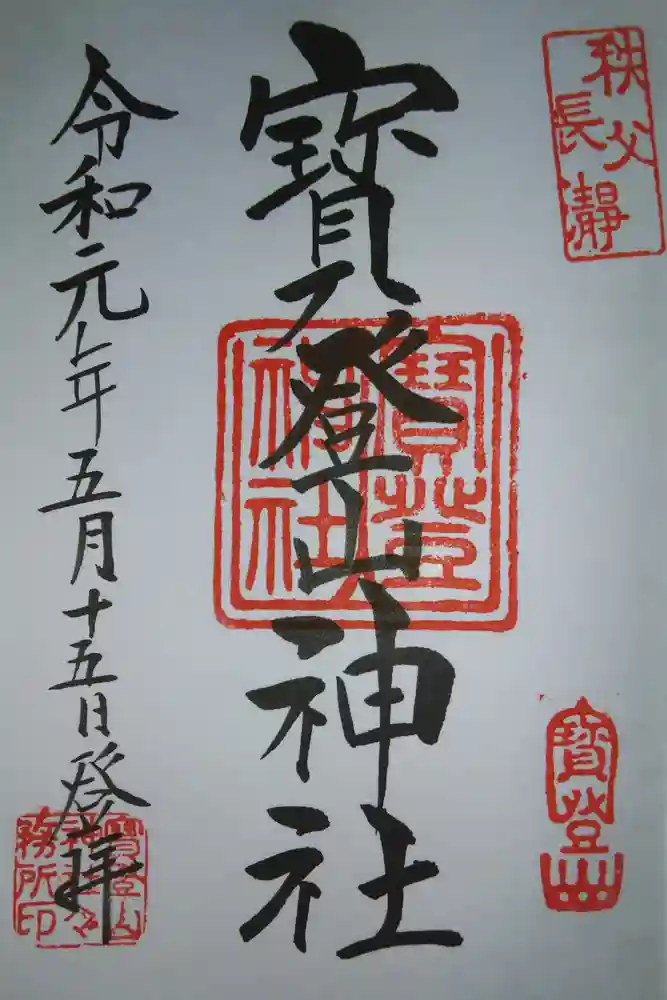 秩父
長瀞
寶登山神社
寶登
神社
寶登山
令和元年五月十五日登拝
寶登山
神社々
務所印